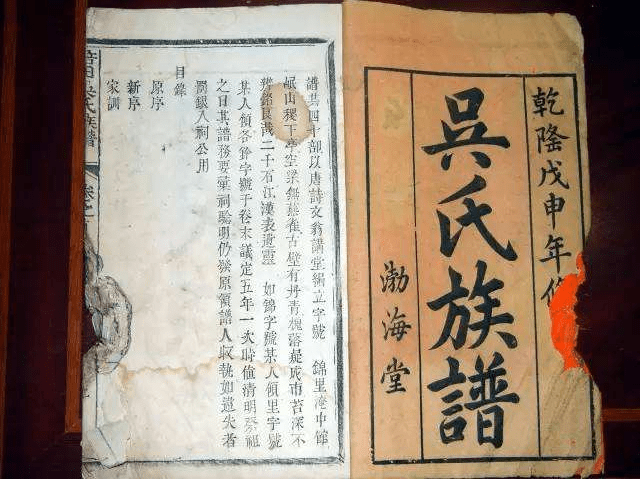 乾隆戊申年修
吳氏族譜
渤海堂
譜共四十部以唐詩文翁講堂編立字號　錦里淹中館
岷山稷下亭空梁無燕雀古壁有丹青槐落疑成市苔深不
辨銘良哉二千石江漢表遺靈　如錦字號某人領里字號
某人領各字號于卷末議定五年一次時值清明祭祖
之日其譜務要彙祠驗明仍發原領譜人收執如遺失者
罰銀入祠公用
目錄
原序
新序
家訓
吳氏族譜